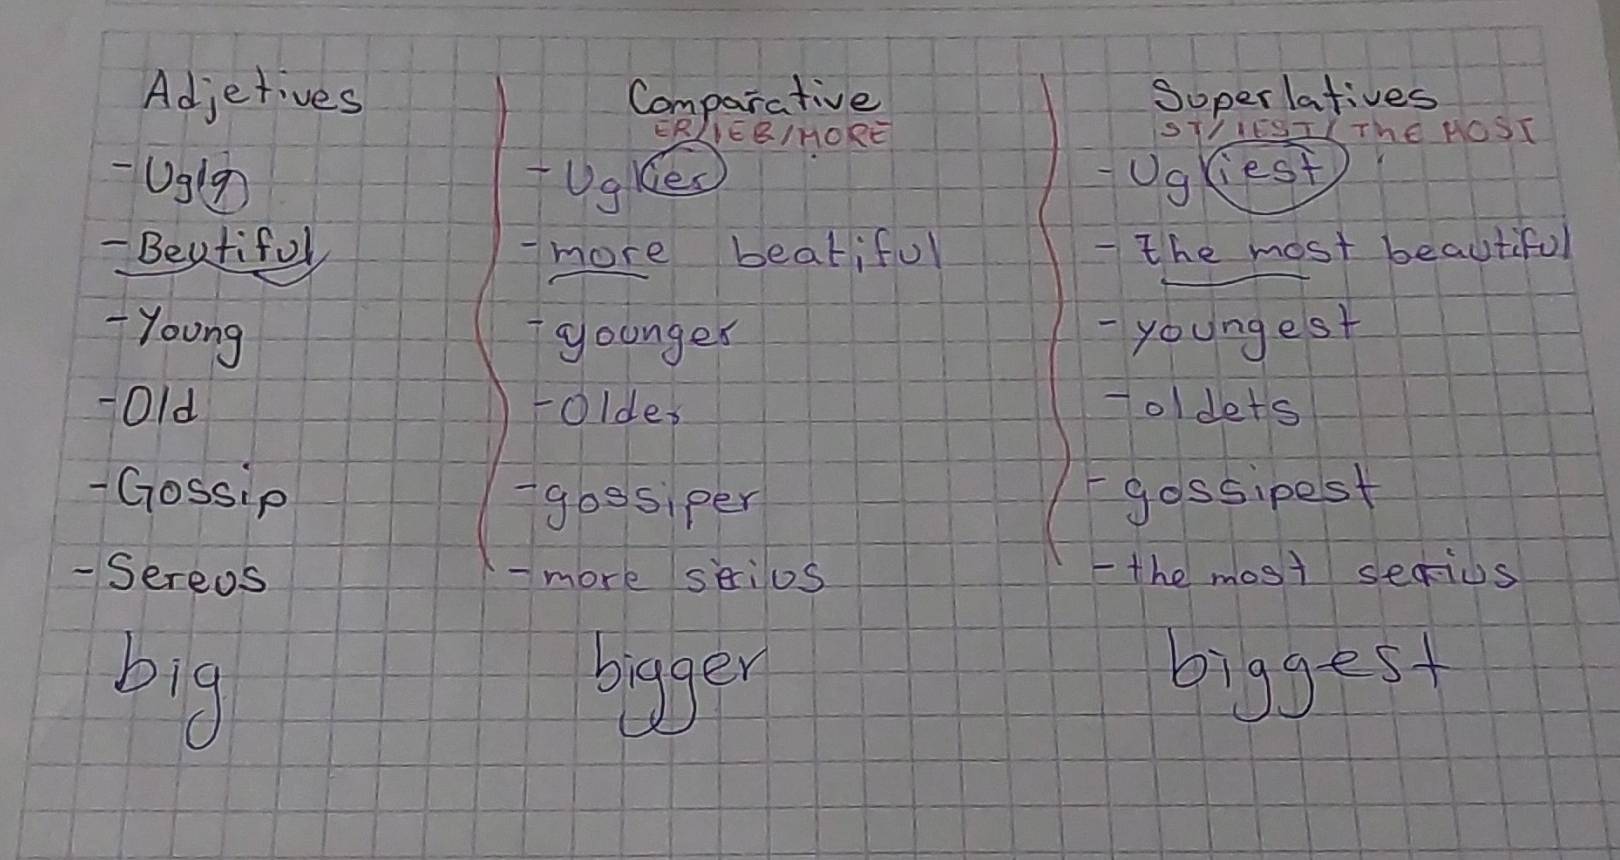 Adjetives Comparative Superlatives
ER/IER/MORE ST/IEST/THE MOST
- Ugly - Uglier - Ugliest
- Beutiful - more beatiful - the most beautiful
- Young - younger - youngest
- Old - Older - oldets
- Gossip - gossiper - gossipest
- Sereos - more serios - the most serius
big bigger biggest